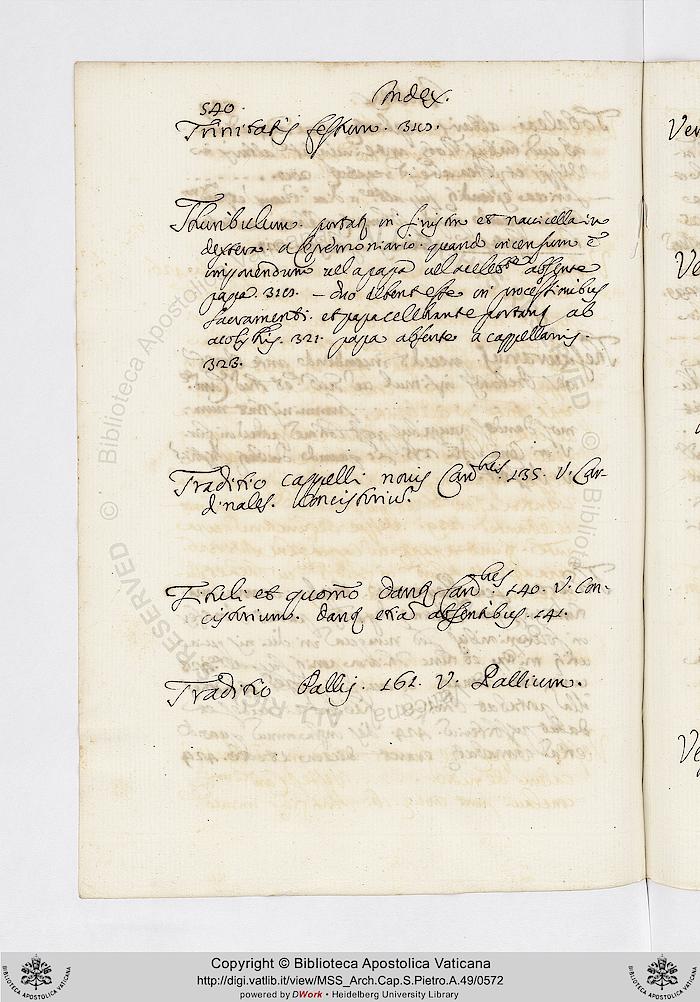 Index.
540.
Trinitatis festum. 310.
Thuribulum. portatʒ in sinistra et navicella in
dextera. a ceremoniario quando incensum ē
imponendum vel a papa vel a celebrante absente
papa. 310. — duo debent esse in processionibus
sacramenti. et papa celebrante portanʒ ab
acolythis. 321. papa absente a cappellanis.
323.
Traditio cappelli novis Cardlibus. 135. V. Car-
dinales. Concistoriū.
Tituli et quomō danʒ Cardlibus. 140. V. Con-
cistorium. danʒ etiā absentibus. 141.
Traditio Pallij. 161. V. Pallium.
Ver
Ve
Ve
RESERVED © Biblioteca Apostolica
Copyright © Biblioteca Apostolica Vaticana
http://digi.vatlib.it/view/MSS_Arch.Cap.S.Pietro.A.49/0572
powered by DWork • Heidelberg University Library
BIBLIOTECA APOSTOLICA VATICANA
BIBLIOTECA APOSTOLICA VATICANA